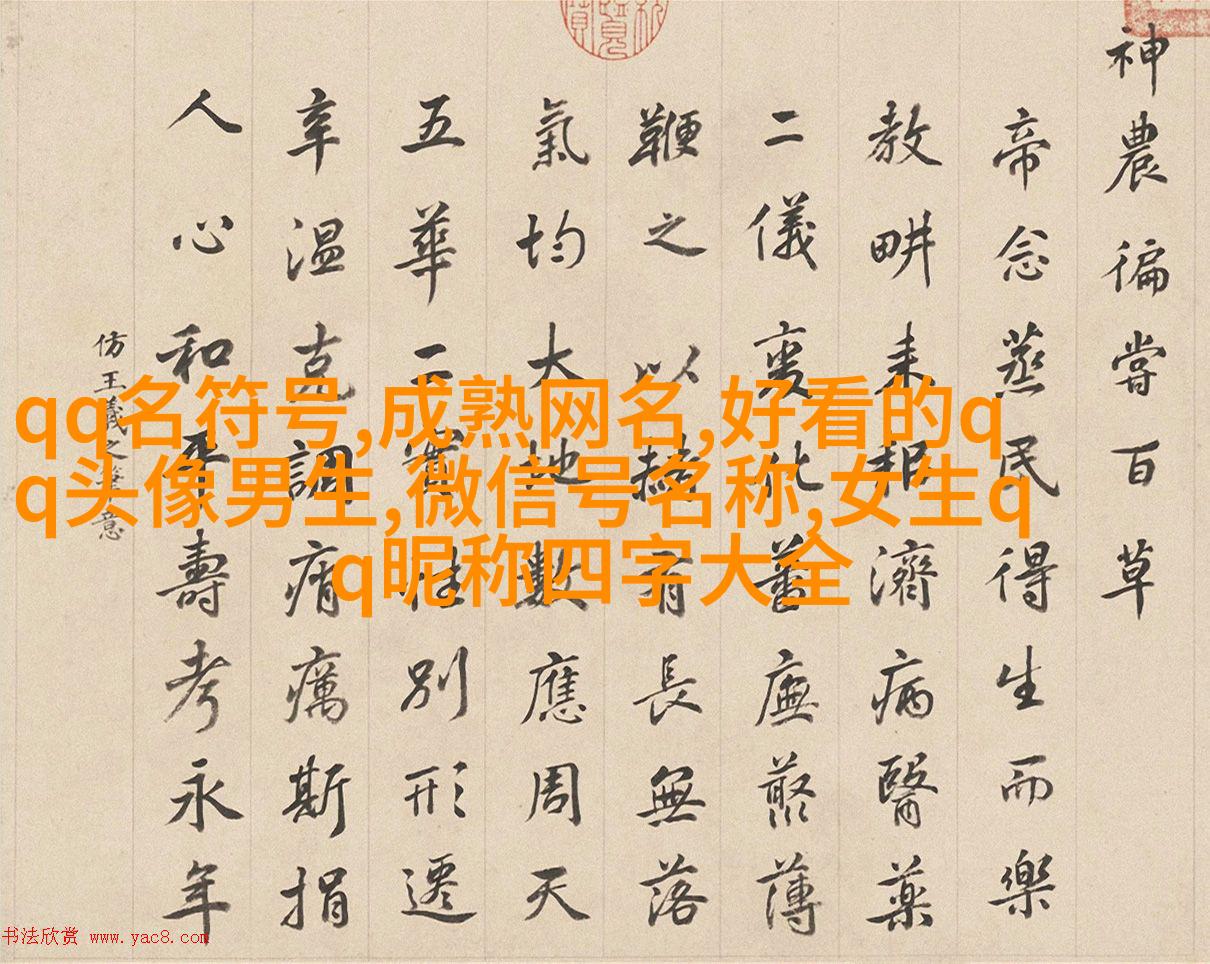 神農徧嘗百草
帝念蒸民得生而樂
教畊耒耜濟病醫藥
二儀變化蕃廡藂薄
鞭之以赭有長無落
氣均大地數應周天
五華二實性別形遷
辛温克調痟癘斯捐
人心和平壽考永年
仿王羲之筆意
qq名符号,成熟网名,好看的q
q头像男生,微信号名称,女生q
q昵称四字大全
书法欣赏 www.yac8.com